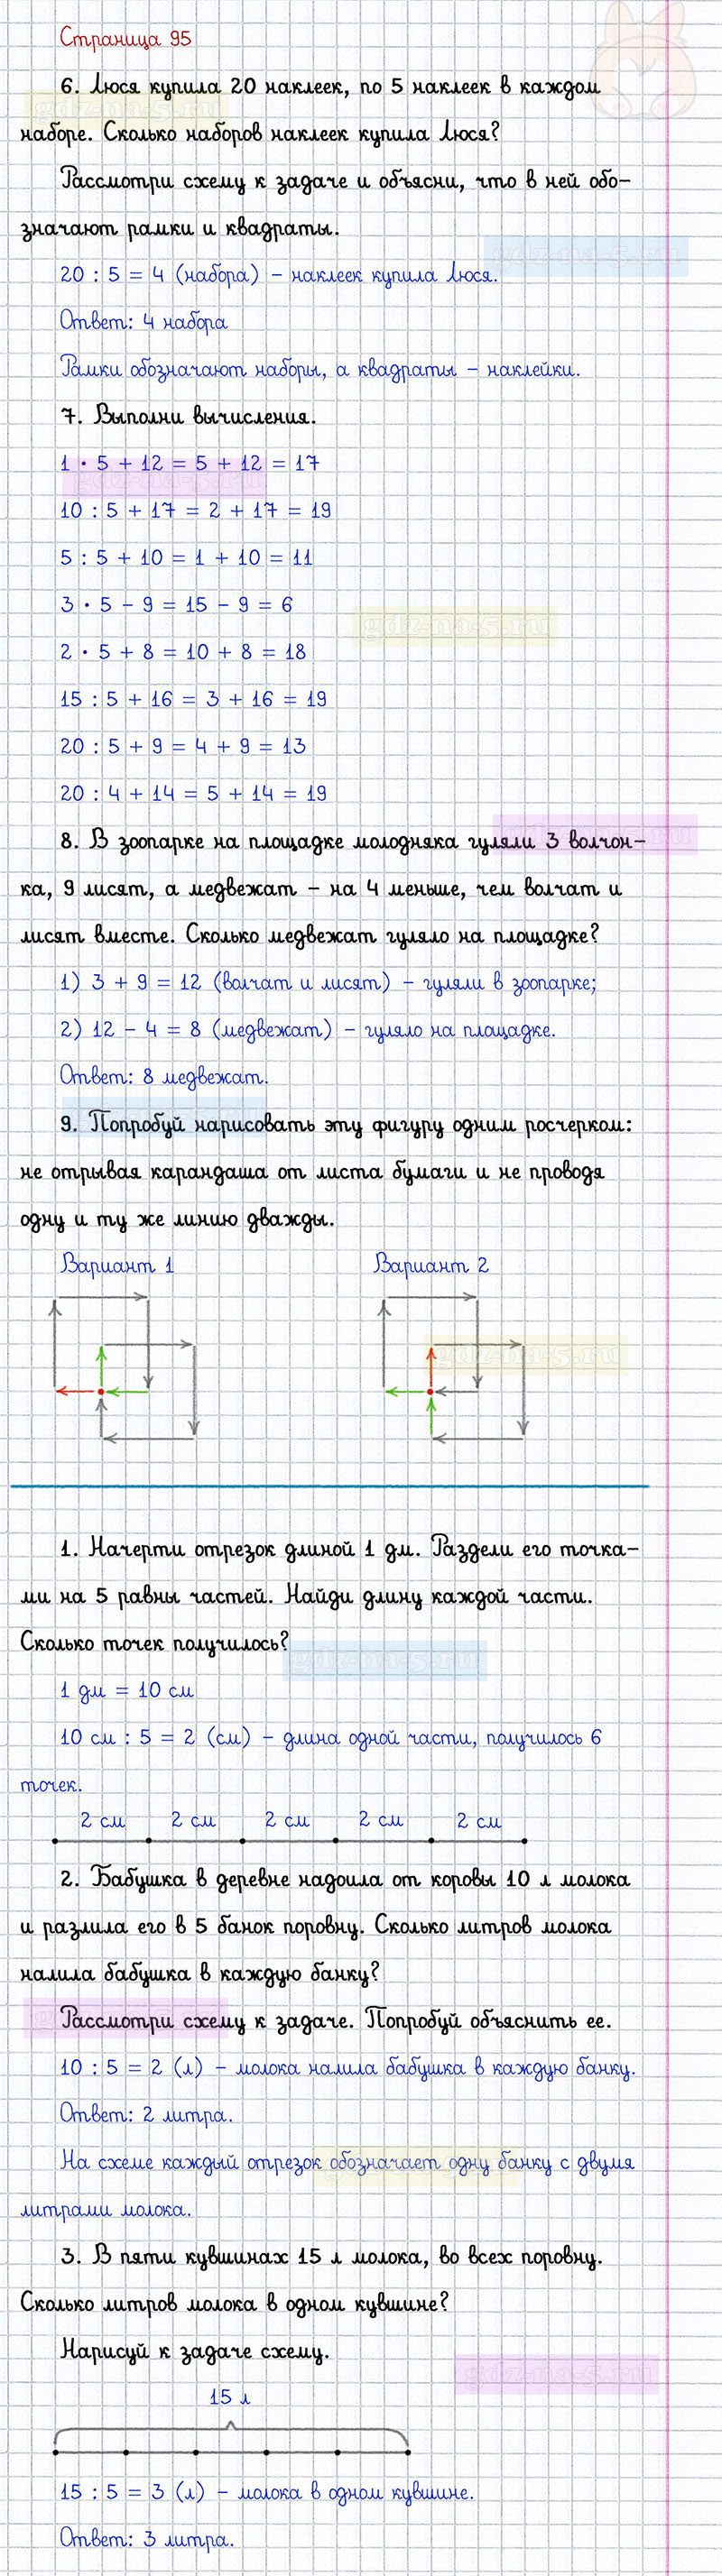 Страница 95
6. Люся купила 20 наклеек, по 5 наклеек в каждом
наборе. Сколько наборов наклеек купила Люся?
Рассмотри схему к задаче и объясни, что в ней обо-
значают рамки и квадраты.
gdz-na-5.ru
20 : 5 = 4 (набора) – наклеек купила Люся.
Ответ: 4 набора
Рамки обозначают наборы, а квадраты – наклейки.
7. Выполни вычисления.
1 · 5 + 12 = 5 + 12 = 17
10 : 5 + 17 = 2 + 17 = 19
5 : 5 + 10 = 1 + 10 = 11
3 · 5 – 9 = 15 – 9 = 6
gdz-na-5.ru
2 · 5 + 8 = 10 + 8 = 18
15 : 5 + 16 = 3 + 16 = 19
20 : 5 + 9 = 4 + 9 = 13
20 : 4 + 14 = 5 + 14 = 19
8. В зоопарке на площадке молодняка гуляли 3 волчон-
ка, 9 лисят, а медвежат – на 4 меньше, чем волчат и
лисят вместе. Сколько медвежат гуляло на площадке?
1) 3 + 9 = 12 (волчат и лисят) – гуляли в зоопарке;
2) 12 – 4 = 8 (медвежат) – гуляло на площадке.
Ответ: 8 медвежат.
9. Попробуй нарисовать эту фигуру одним росчерком:
не отрывая карандаша от листа бумаги и не проводя
одну и ту же линию дважды.
Вариант 1 Вариант 2
gdz-na-5.ru
1. Начерти отрезок длиной 1 дм. Раздели его точка-
ми на 5 равны частей. Найди длину каждой части.
Сколько точек получилось?
gdz-na-5.ru
1 дм = 10 см
10 см : 5 = 2 (см) – длина одной части, получилось 6
точек.
2 см 2 см 2 см 2 см 2 см
2. Бабушка в деревне надоила от коровы 10 л молока
и разлила его в 5 банок поровну. Сколько литров молока
налила бабушка в каждую банку?
Рассмотри схему к задаче. Попробуй объяснить ее.
10 : 5 = 2 (л) – молока налила бабушка в каждую банку.
Ответ: 2 литра.
На схеме каждый отрезок обозначает одну банку с двумя
литрами молока.
3. В пяти кувшинах 15 л молока, во всех поровну.
Сколько литров молока в одном кувшине?
Нарисуй к задаче схему.
gdz-na-5.ru
15 л
15 : 5 = 3 (л) – молока в одном кувшине.
Ответ: 3 литра.